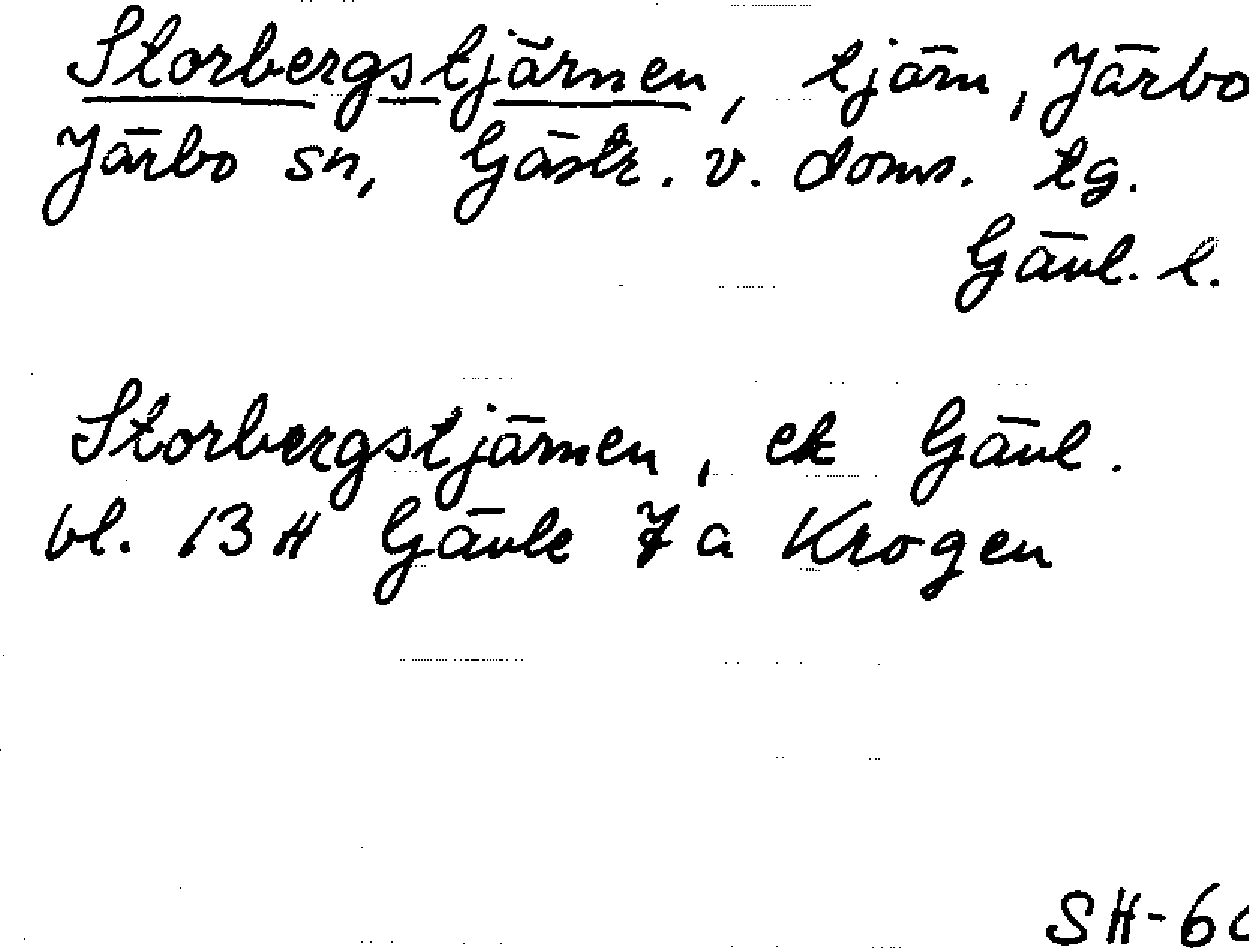 Storbergstjärnen, tjärn, Järbo
Järbo sn, Gästr. v. doms. tg.
Gävl. l.
Storbergstjärnen, ek Gävl.
bl. 13 H Gävle 7 a Krogen
SH-60